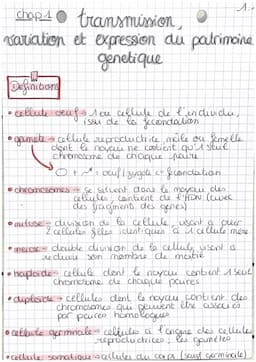 1.
chap 1 transmission,
variation et expression du patrimoine
génétique
Définitions
• cellule œuf → 1ère cellule de l'individu,
issu de la fécondation
• gamète → cellule reproductrice, mâle ou femelle
dont le noyau ne contient qu'1 seul
chromosome de chaque paire
→ fécondation
• chromosomes → se situent dans le noyau des
cellules, contient de l'ADN (avec
des fragments des gènes)
• mitose → division de la cellule, visant à avoir
2 cellules filles identiques à 1 cellule mère
• méiose → double division de la cellule, visant à
réduire son nombre de moitié
• haploïde → cellule dont le noyau contient 1 seul
chromosome de chaque paire
• diploïde → cellules dont le noyau contient des
chromosomes qui peuvent être associés
par paires homologues
• cellule germinale → cellules à l'origine des cellules
reproductrices, les gamètes
• cellule somatique → cellules du corps (sauf germinale)